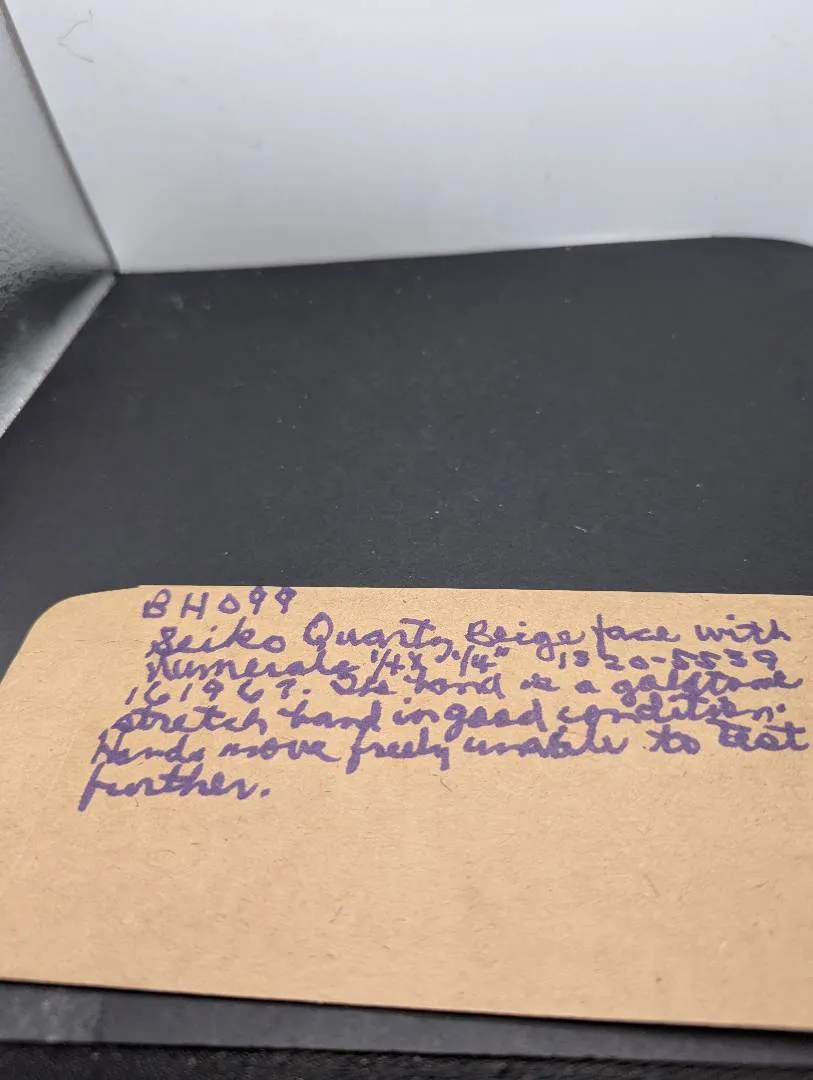 BH099
Seiko Quartz, Beige face with
numerals 1/4 x 1/4" 1320-5539
161967. The band is a goldtone
stretch band in good condition.
Hands move freely unable to test
further.